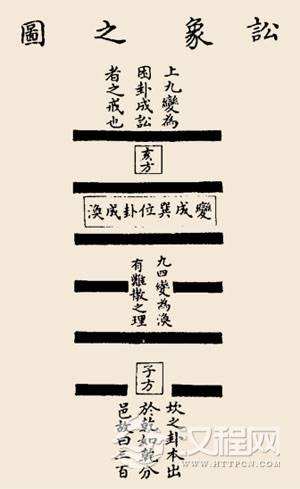 訟象之圖
上九變為
困卦成訟
者之戒也
亥方
變成巽位卦成渙
九四變為渙
有難散之理
子方
坎之卦本出
於乾如乾分
邑故曰三百
汉程网
HTTPCN.COM